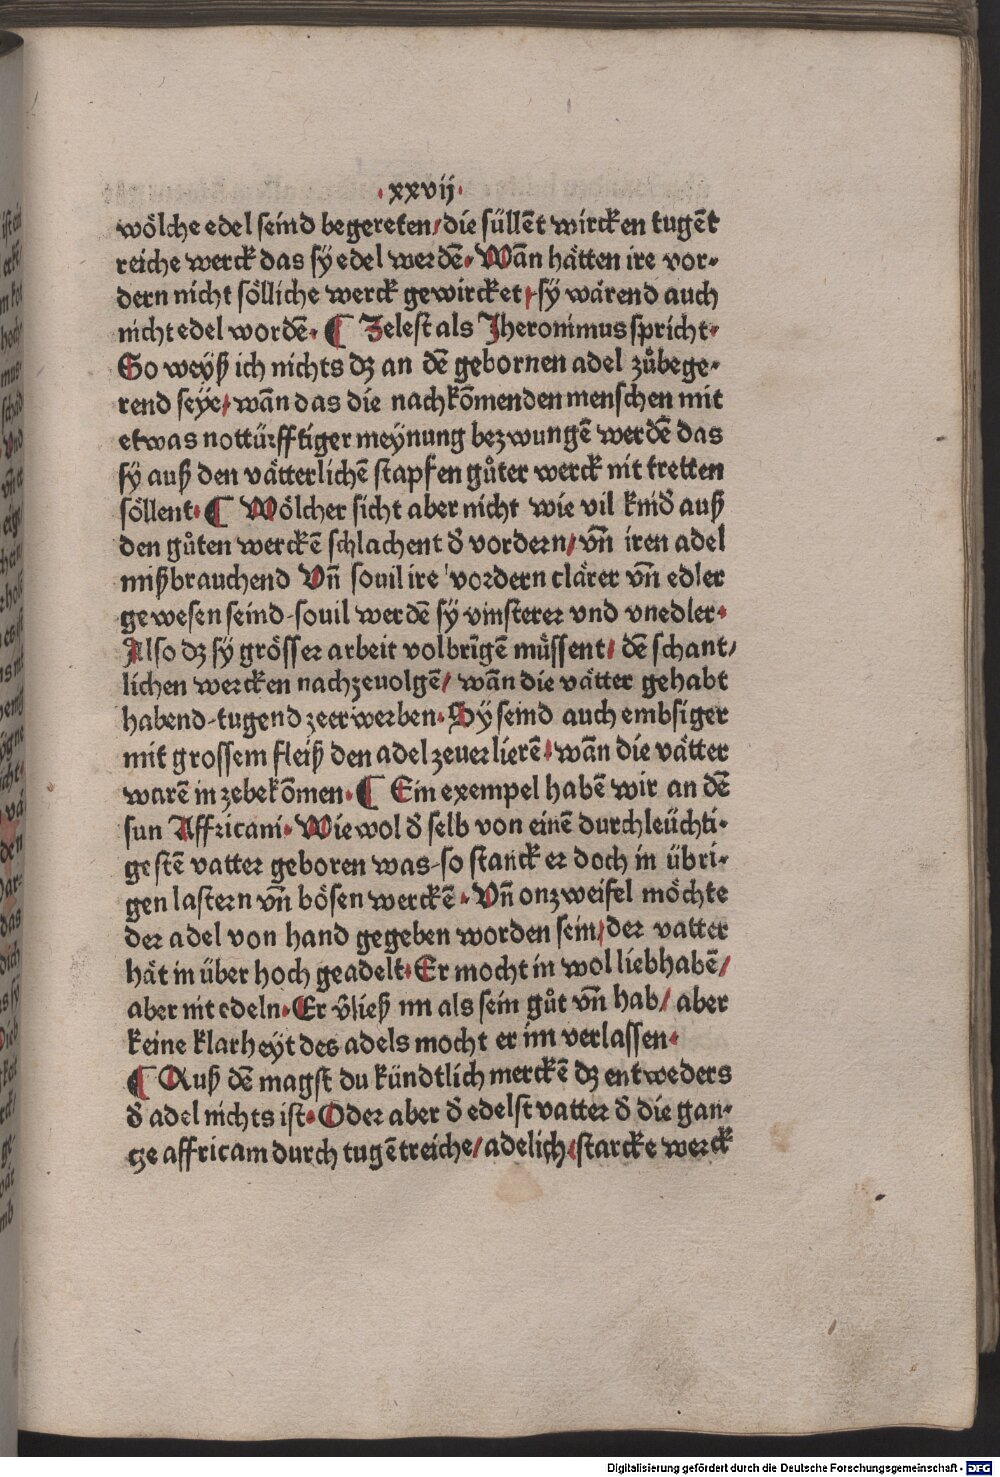 ·xxvij·
wölche edel seind begereten/die süllēt wircken tugēt
reiche werck das sÿ edel werdē· Wañ hätten ire vor⸗
dern nicht sölliche werck gewircket/ sÿ wärend auch
nicht edel wordē· ¶ Zelest als Jheronimus spricht·
So weyß ich nichts dz an dē gebornen adel zůbege⸗
rend seye/ wañ das die nachkōmenden menschen mit
etwas nottürfftiger meynung bezwungē werdē das
sÿ auß den vätterlichē stapfen gůter werck nit tretten
söllent·¶ Wölcher sicht aber nicht wie vil kind auß
den gůten werckē schlachent ď vordern/ vñ iren adel
mißbrauchend Vñ souil ire vordern clärer vñ edler
gewesen seind-souil werdē sÿ vinsterer vnd vnedler·
Also dz sÿ grösser arbeit volbrīgē müssent/ dē schant/
lichen wercken nachzeuolgē/ wañ die vätter gehabt
habend-tugend zeerwerben· Sÿ seind auch embsiger
mit grossem fleiß den adel zeuerlierē· wañ die vätter
warē in zebekōmen·¶ Ein exempel habē wir an dē
sun Affricani· Wie wol ď selb von einē durchleüchti⸗
gestē vatter geboren was-so stanck er doch in übri⸗
gen lastern vñ bösen werckē · Vñ on zweifel möchte
der adel von hand gegeben worden sein/der vatter
hät in über hoch geadelt·Er mocht in wol liebhabē/
aber nit edeln·Er v̄ließ im als sein gůt vñ hab/ aber
keine klarheyt des adels mocht er im verlassen·
¶ Auß dē magst du kündtlich merckē dz entweders
ď adel nichts ist· Oder aber ď edelst vatter ď die gan⸗
cze affricam durch tugētreiche/adelich/starcke werck
Digitalisierung gefördert durch die Deutsche Forschungsgemeinschaft - DFG